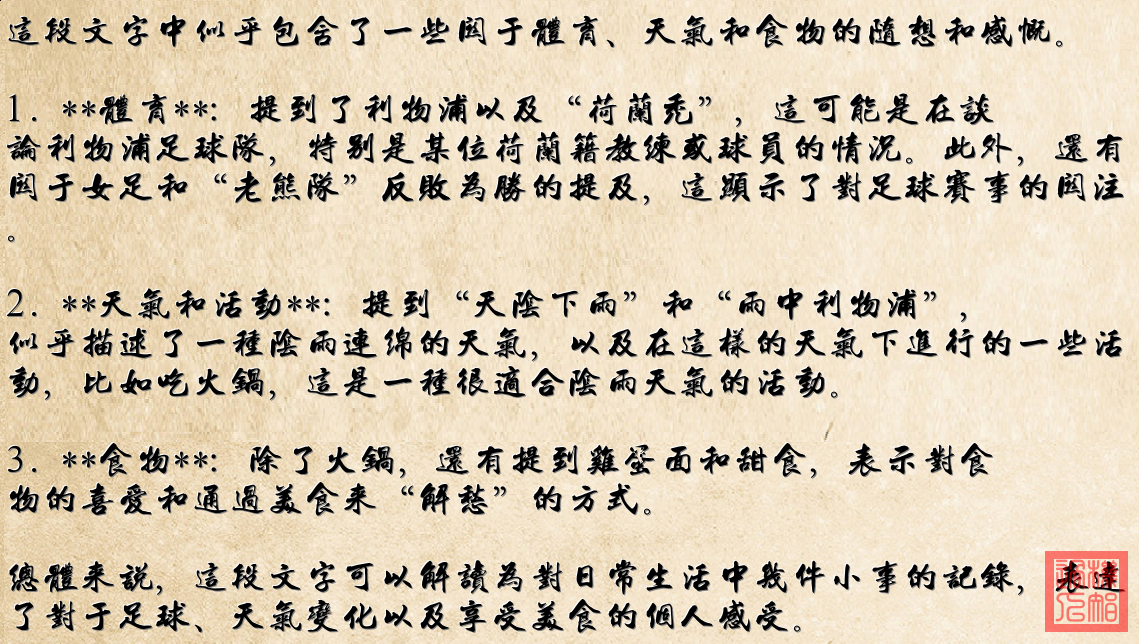 這段文字中似乎包含了一些關于體育、天氣和食物的隨想和感慨。
1. **體育**: 提到了利物浦以及“荷蘭禿”, 這可能是在談
論利物浦足球隊, 特別是某位荷蘭籍教練或球員的情況。此外, 還有
關于女足和“老熊隊”反敗為勝的提及, 這顯示了對足球賽事的關注
。
2. **天氣和活動**: 提到“天陰下雨”和“雨中利物浦”,
似乎描述了一種陰雨連綿的天氣, 以及在這樣的天氣下進行的一些活
動, 比如吃火鍋, 這是一種很適合陰雨天氣的活動。
3. **食物**: 除了火鍋, 還有提到雞蛋面和甜食, 表示對食
物的喜愛和通過美食来“解愁”的方式。
總體来説, 這段文字可以解讀為對日常生活中幾件小事的記錄, 表達
了對于足球、天氣變化以及享受美食的個人感受。